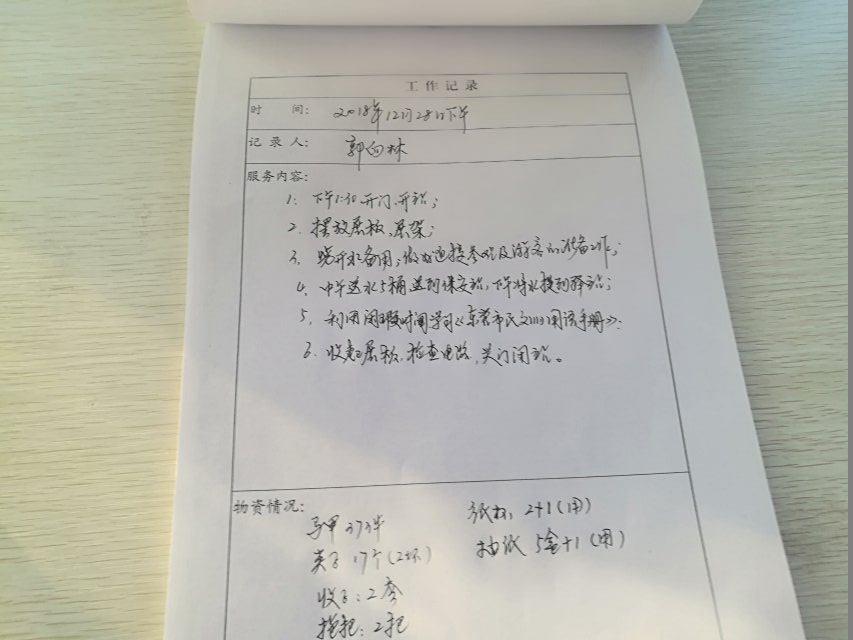 工作记录
时 间: 2018年12月28日下午
记录人: 郭向林
服务内容:
1. 下午1:30开门、开站;
2. 摆放展板、展架;
3. 烧开水备用,做好迎接参观及游客的准备工作;
4. 中午送水5桶送到保安站,下午将水提到驿站;
5. 利用闲暇时间学习《东营市民文明用语手册》.
6. 收起展板,检查电路,关门闭站。
物资情况:
马甲37件
纸杯: 2+1(用)
17个(2坏)
抽纸 5盒+1(用)
拖把: 2把